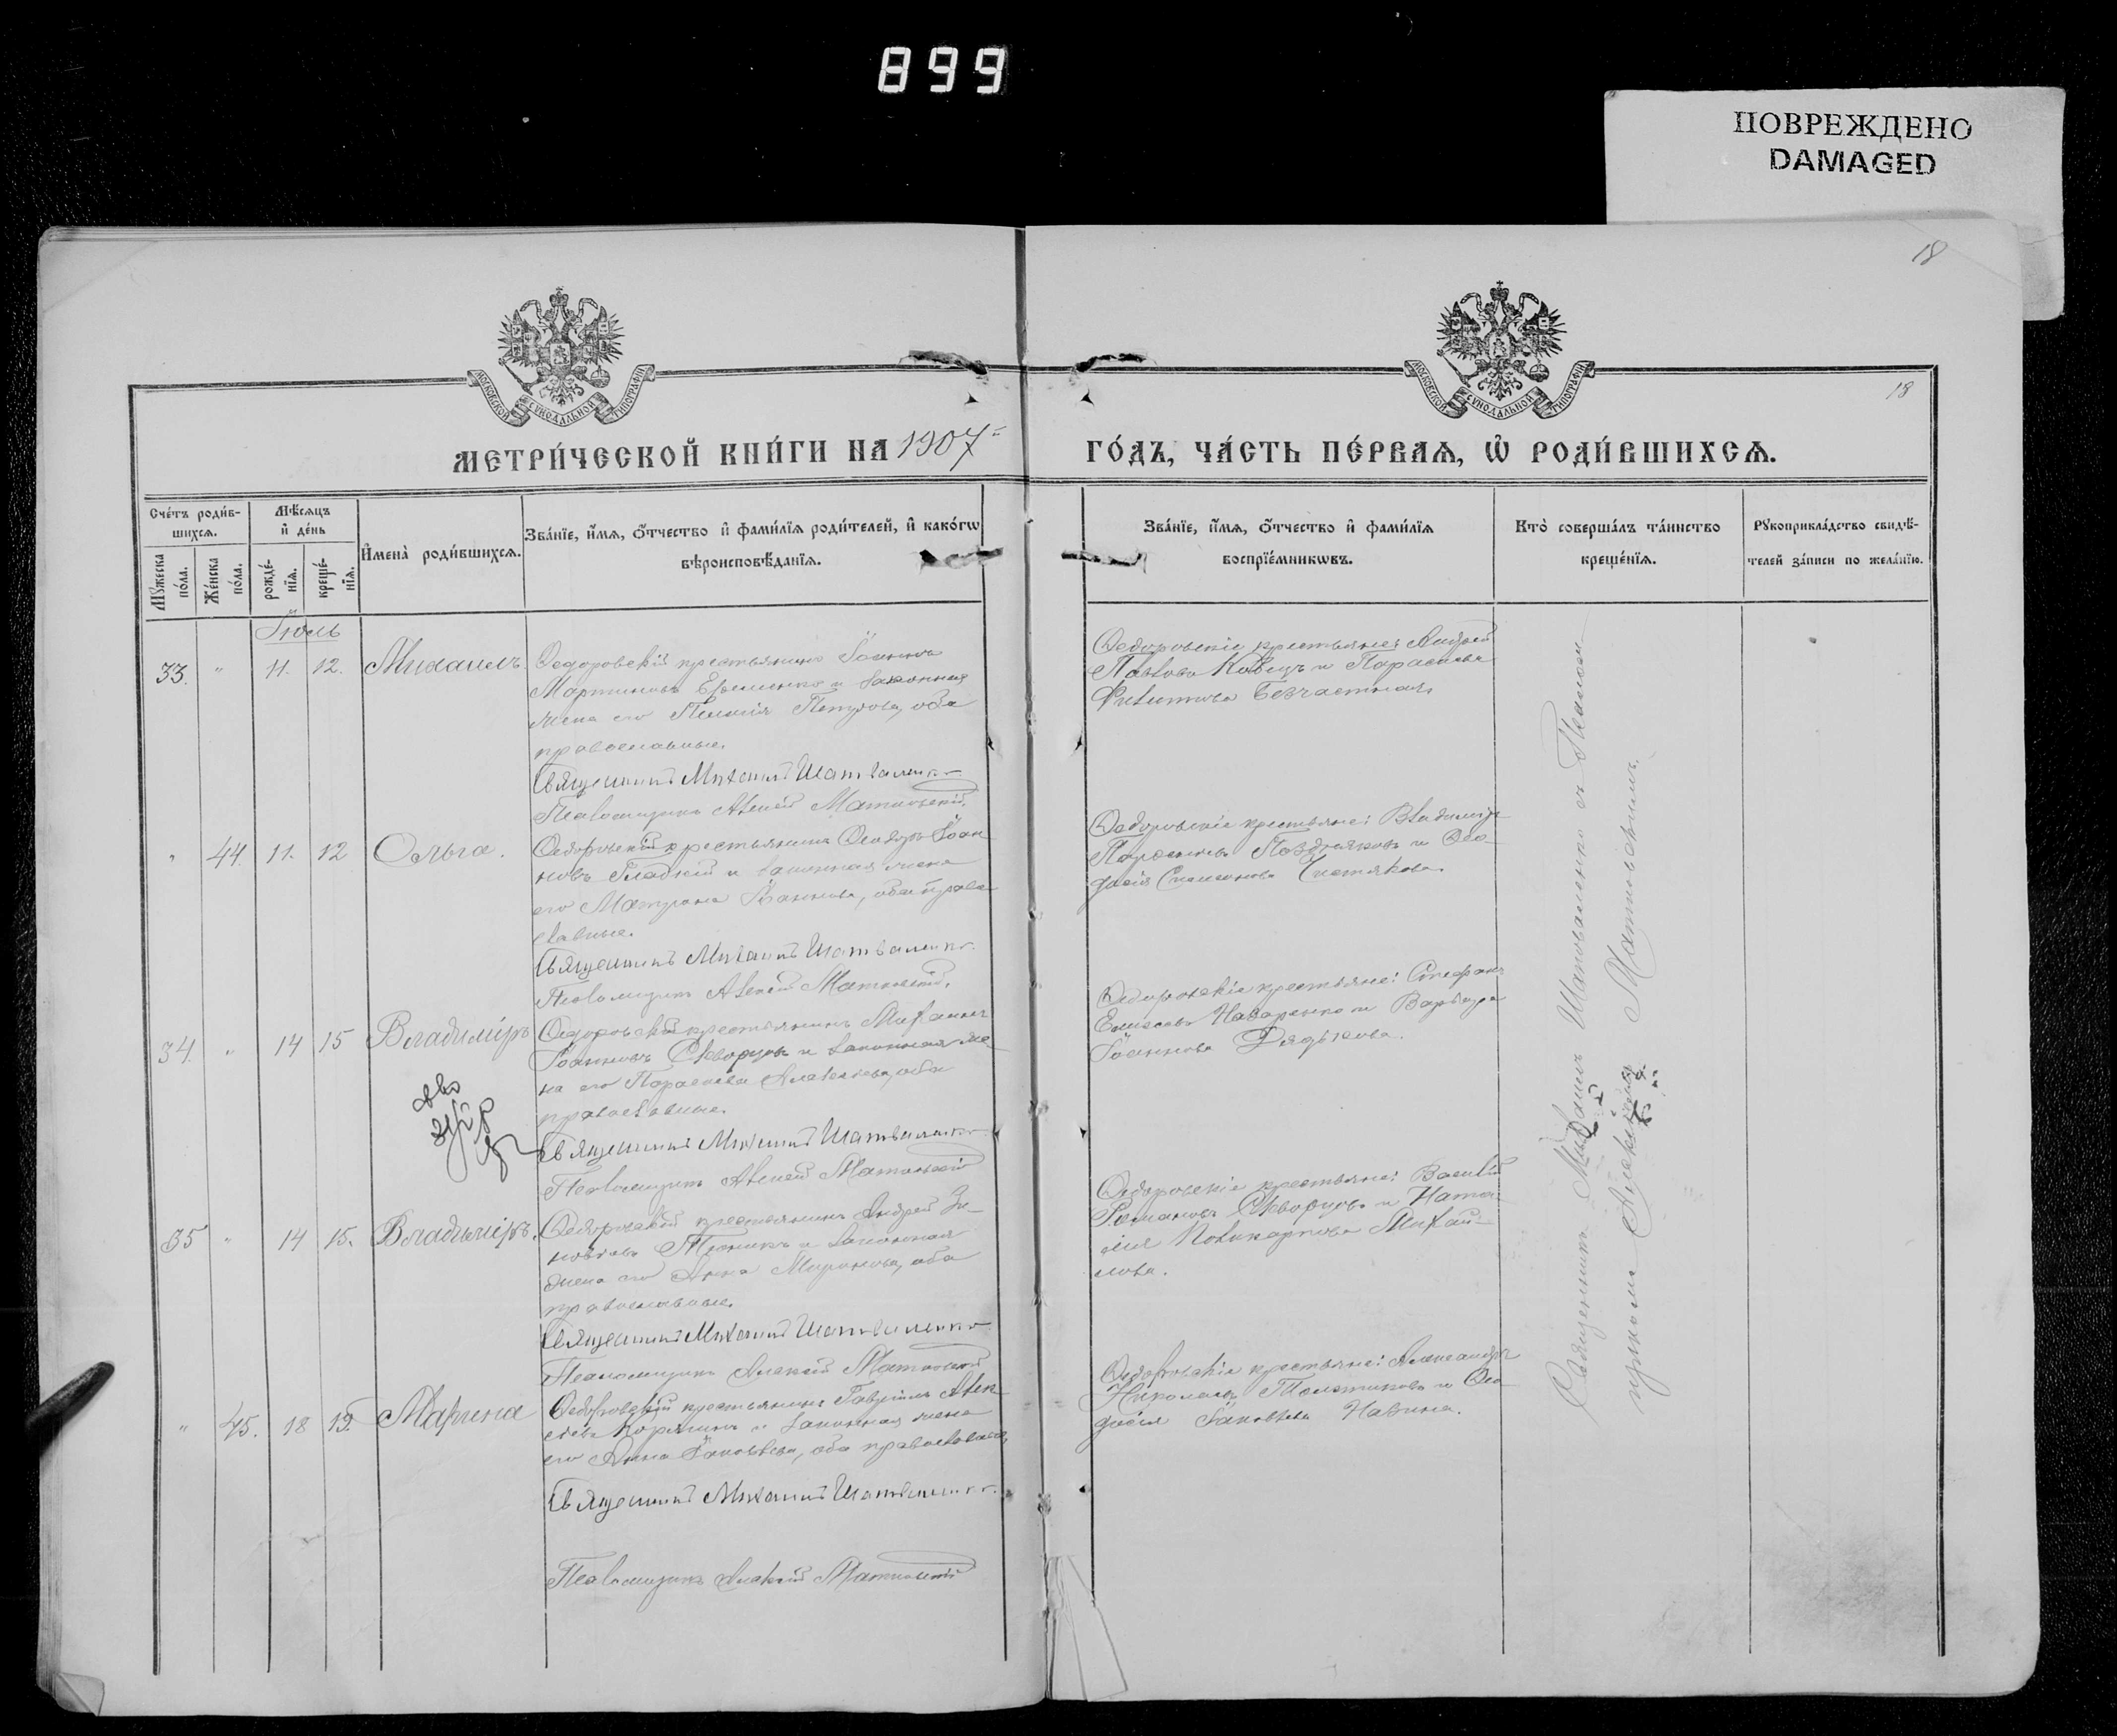 899
ПОВРЕЖДЕНО
DAMAGED
18
МОСКОВСКОЙ СѴНОДАЛЬНОЙ ТИПОГРАФІИ
МОСКОВСКОЙ СѴНОДАЛЬНОЙ ТИПОГРАФІИ
18
МЕТРИ́ЧЕСКОЙ КНИ́ГИ НА 1907
ГО́ДЪ, ЧА́СТЬ ПЕ́РВАѦ, Ѽ РОДИ́ВШИХСѦ.
Сче́тъ роди́в-
шихсѧ.
Мꙋжеска по́ла.
Же́нска по́ла.
Мѣ́сѧцъ
и҆ де́нь
рожде́-
нїѧ.
креще́-
нїѧ.
И҆мена̀ роди́вшихсѧ.
Зва́нїе, и҆́мѧ, ѻ҆́тчество и҆ фами́лїѧ роди́телей, и҆ како́гѡ
вѣроисповѣ́данїѧ.
Зва́нїе, и҆́мѧ, ѻ҆́тчество и҆ фами́лїѧ
воспрїе́мникѡвъ.
Кто̀ соверша́лъ та́инство
креще́нїѧ.
Рꙋкоприкла́дство свидѣ́-
телей за́писи по жела́нїю.
Іюль
33. " 11. 12. Михаилъ.
Ѳедоровскій крестьянинъ Іоаннъ
Мартиновъ Еременко и законная
жена его Петрова, оба
православные.
Священникъ Михаилъ Шаповаленко
Псаломщикъ Алексій Матковскій.
Ѳедоровскіе крестьяне: Андрей
Павловъ и Параскева
Филиппова Безчастная.
" 44. 11. 12 Ольга.
Ѳедоровскій крестьянинъ Ѳеодоръ Іоан
новъ Гладкій и законная жена
его Матрона Іоаннова, оба право
славные.
Священникъ Михаилъ Шаповаленко.
Псаломщикъ Алексій Матковскій.
Ѳедоровскіе крестьяне: Владимиръ
Поздняковъ и Ѳео-
досія Симеонова Чистякова.
34. " 14 15 Владиміръ
Ѳедоровскій крестьянинъ Михаилъ
Іоанновъ Скворцовъ и законная же-
на его Параскева Алексіева, оба
православные.
Священникъ Михаилъ Шаповаленко
Псаломщикъ Алексій Матковскій
Ѳедоровскіе крестьяне: Стефанъ
Назаренко и Варвара
Іоаннова Дядькова.
35 " 14 15. Владиміръ.
Ѳедоровскій крестьянинъ Андрей Зи-
новіевъ и законная
жена его Анна Миронова, оба
православные.
Священникъ Михаилъ Шаповаленко
Псаломщикъ Алексій Матковскій
Ѳедоровскіе крестьяне: Василій
Романовъ Скворцовъ и Ната-
лія Поликарпова Михай-
лова.
" 45. 18 19. Марина
Ѳедоровскій крестьянинъ Гавріилъ Алек
сѣевъ и законная жена
его Анна Іаковлева, оба православные.
Священникъ Михаилъ Шаповаленко.
Псаломщикъ Алексій Матковскій
Ѳедоровскіе крестьяне: Александръ
Николаевъ Толстиковъ и Ѳео
досія Іаковлева
Священникъ Михаилъ Шаповаленко съ Псалом-
щикомъ Алексіемъ Матковскимъ.